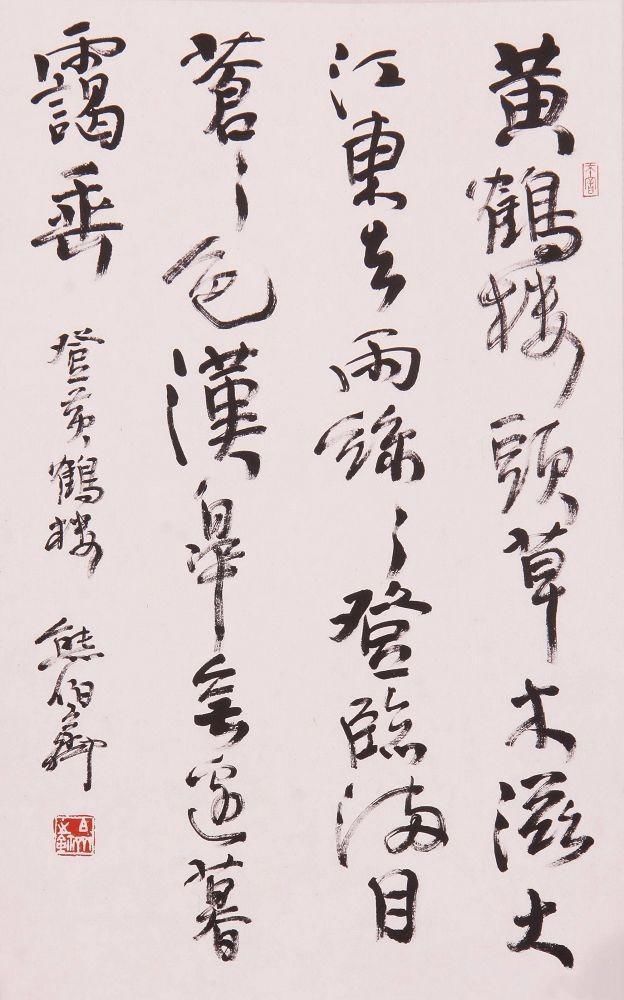 黄鶴楼頭草木滋大
江東去雨絲絲登臨滿目
蒼蒼色漢皋無邊暮
靄垂 登黄鶴楼 熊伯齊